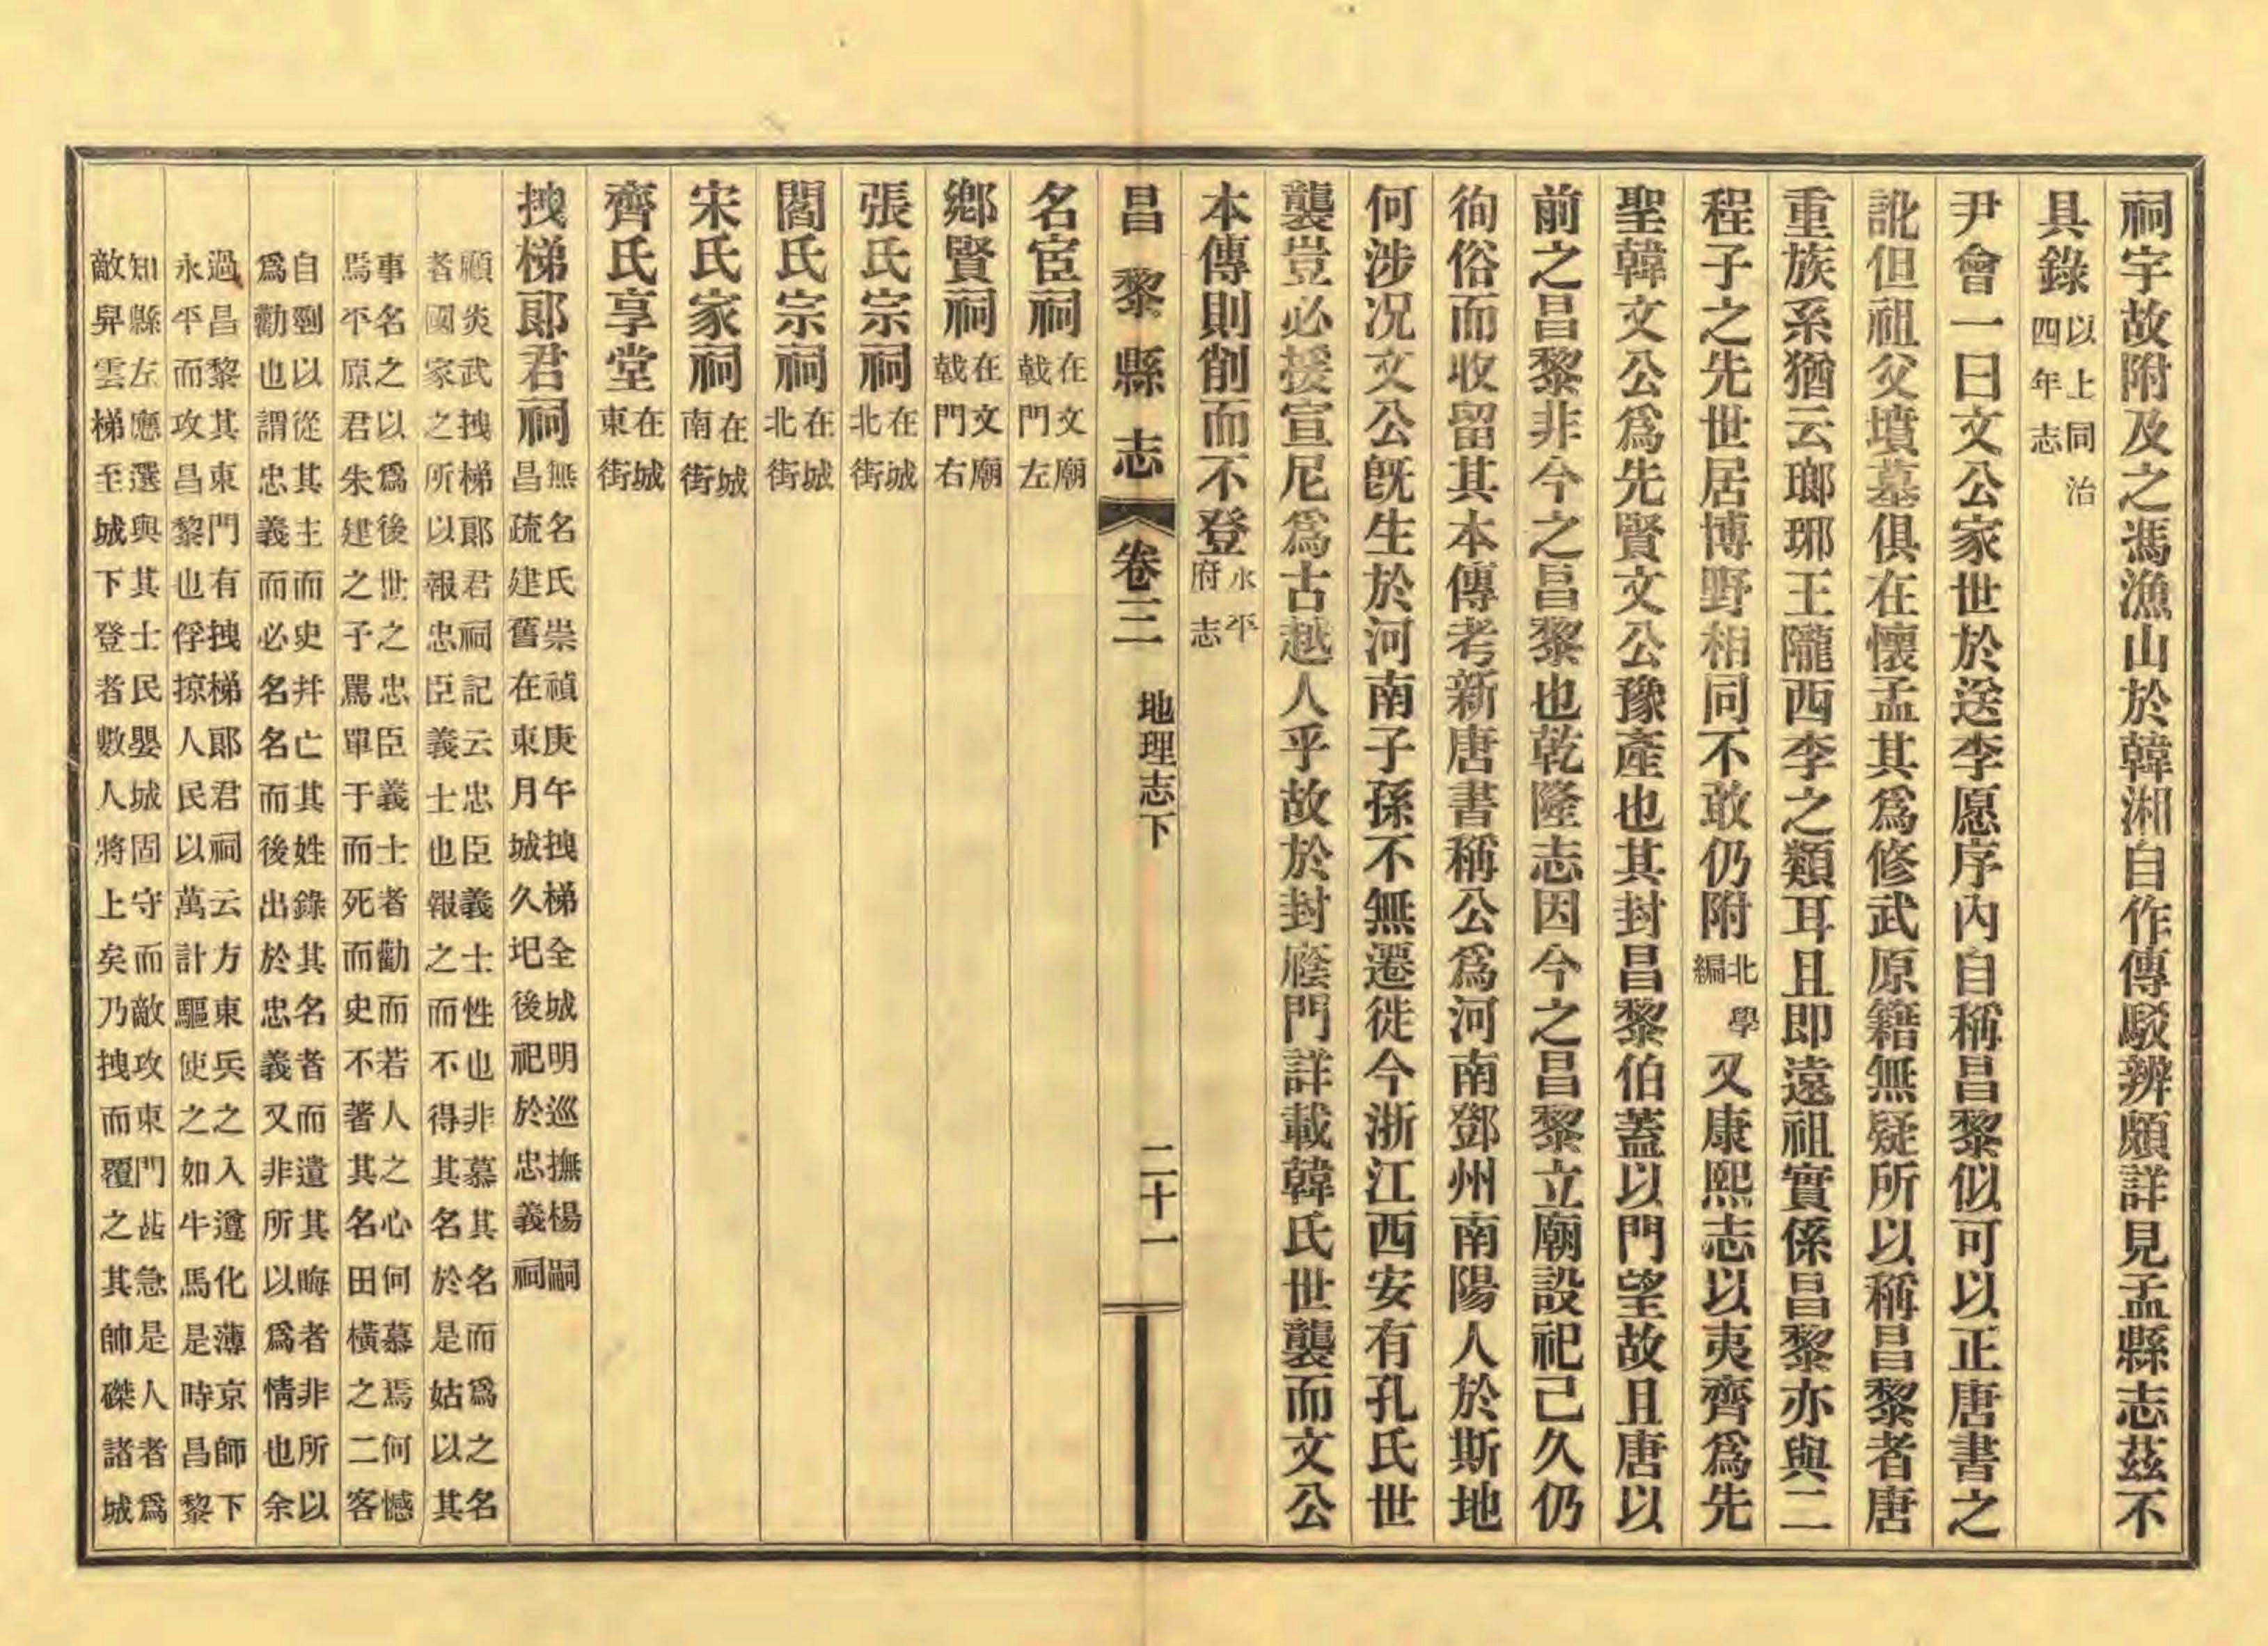 祠宇故附及之馮漁山於韓湘自作傳駁辨頗詳見孟縣志茲不
具錄以上同治四年志
尹會一曰文公家世於送李愿序內自稱昌黎似可以正唐書之
訛但祖父墳墓俱在懷孟其爲修武原籍無疑所以稱昌黎者唐
重族系猶云瑯琊王隴西李之類耳且即遠祖實係昌黎亦與二
程子之先世居博野相同不敢仍附北學編又康熙志以夷齊爲先
聖韓文公爲先賢文公豫產也其封昌黎伯蓋以門望故且唐以
前之昌黎非今之昌黎也乾隆志因今之昌黎立廟設祀已久仍
徇俗而收留其本傳考新唐書稱公爲河南鄧州南陽人於斯地
何涉况文公旣生於河南子孫不無遷徙今浙江西安有孔氏世
襲豈必援宣尼爲古越人乎故於封廕門詳載韓氏世襲而文公
本傳則削而不登永平府志
昌黎縣志 卷三 地理志下 二十一
名宦祠在文廟戟門左
鄉賢祠在文廟戟門右
張氏宗祠在城北街
閻氏宗祠在城北街
宋氏家祠在城南街
齊氏享堂在城東街
拽梯郎君祠無名氏崇禎庚午拽梯全城明巡撫楊嗣
昌疏建舊在東月城久圮後祀於忠義祠
顧炎武拽梯郎君祠記云忠臣義士性也非慕其名而爲之名
者國家之所以報忠臣義士也報之而不得其名於是姑以其
事名之以爲後世之忠臣義士者勸而若人之心何慕焉何憾
焉平原君朱建之子罵單于而死而史不著其名田橫之二客
自剄以從其主而史并亡其姓錄其名者而遺其晦者非所以
爲勸也謂忠義而必名名而後出於忠義又非所以爲情也余
過昌黎其東門有拽梯郎君祠云方東兵之入遵化薄京師下
永平而攻昌黎也俘掠人民以萬計驅使之如牛馬是時昌黎
知縣左應選與其士民嬰城固守而敵攻東門甚急是人者爲
敵舁雲梯至城下登者數人將上矣乃拽而覆之其帥磔諸城